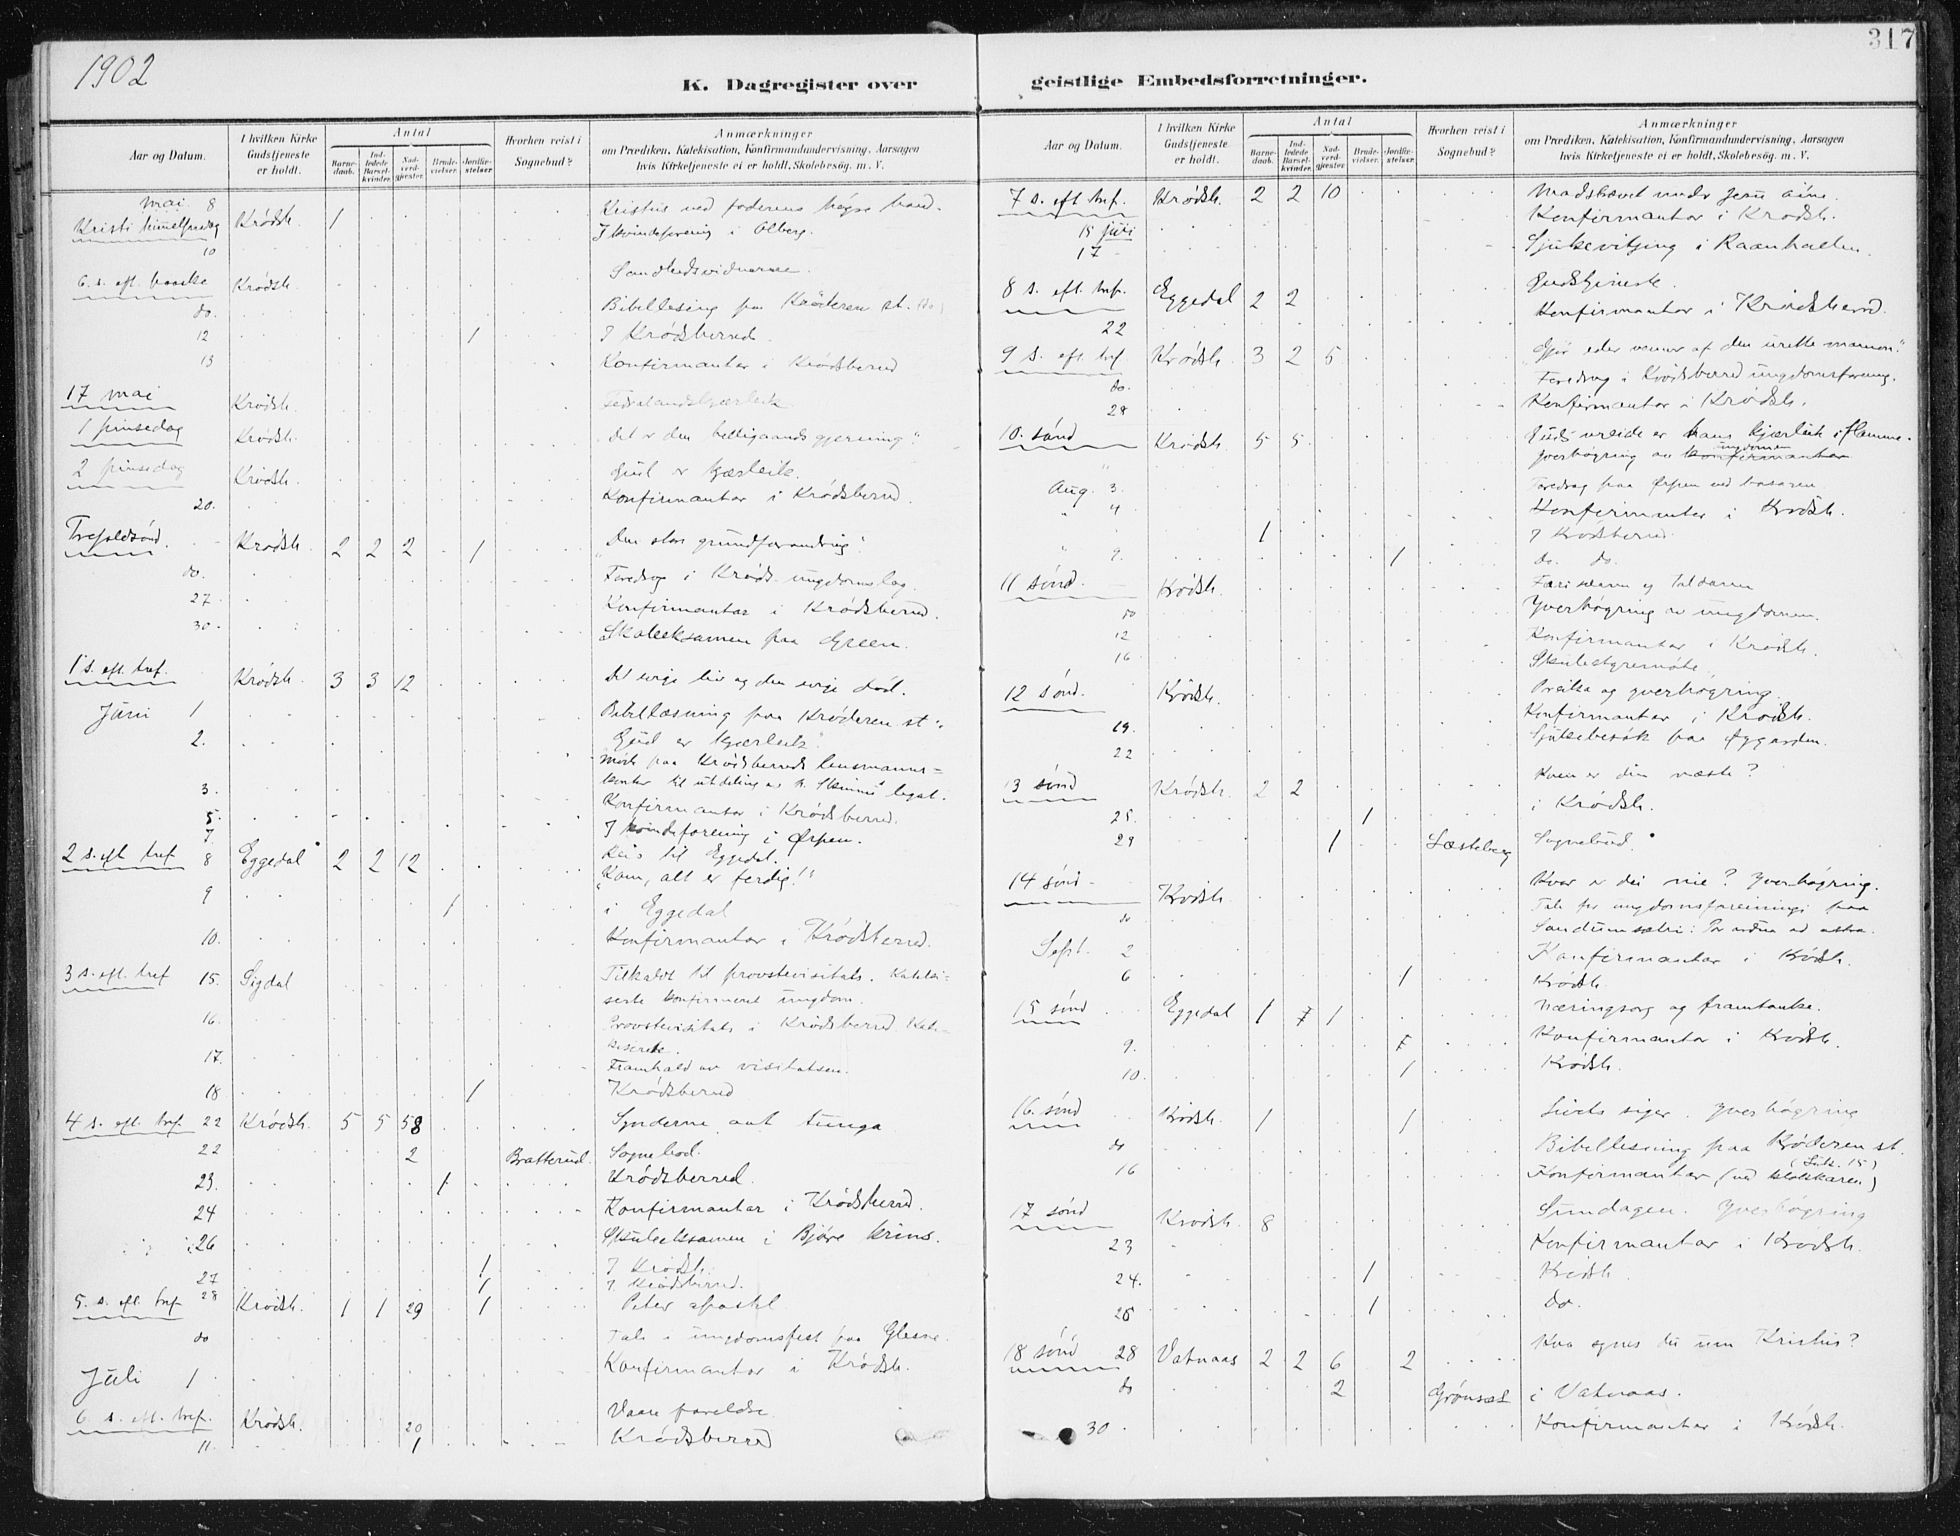 1902
K. Dagregister over
Aar og Datum.
I hvilken Kirke Gudstjeneste er holdt.
Antal
Barnedaab.
Indledede Barselkvinder.
Nadverdgjester.
Brudevielser.
Jordfestelser
Hvorhen reist i Sognebud?
Anmærkninger
om Prædiken, Katekisation, Konfirmandundervisning, Aarsagen
hvis Kirketjeneste ei er holdt, Skolebesög. m. V.
mai 8
Kristi himmelfersdag Krødsh. 1 Kristus ved faderens høgre hand.
10 I kvindeforening i Olberg.
6. s. eft. paaske Krødsh. Sandhedsvidnerne
do. Bibellesing paa Krøderen st.
12 1 I Krødsherred.
13 Konfirmantar i Krødsherred
17 mai Krødsh. Fedrelandskjærleik
1 pinsedag Krødsh. Det er den helligaands gjerning"
2 pinsedag Krødsh. Gud er kjærleik.
20. Konfirmantar i Krødsherred.
Trefoldsønd. Krødsh. 2 2 2 1 "Den store grundforandring".
do. Foredrag i Krøds. ungdomslag
27 Konfirmantar i Krødsherred.
30. Skoleeksamen paa Green.
1 s. eft. tref. Krødsh. 3 3 12 Det evige liv og den evige död.
Juni 1 Bibellæsning paa Krøderen st.
2. "Gud er kjærleik".
Møte paa Krødsherreds lensmanns=
3. kontor til utdeling av N. Skinnes legat.
5. Konfirmantar i Krødsherred.
7. I kvindeforening i Ørpen.
2 s. eft tref 8 Eggedal 2 2 12 Reis til Eggedal.
"Kom, alt er ferdig!"
9 1 i Eggedal
10. Konfirmantar i Krødsherred.
3 s. eft. tref 15. Sigdal Tilkaldt til provstevisitats. Kateki-
serte konfirmeret ungdom.
16. Provstevisitats i Krødsherred. Kate-
kiserte.
17. Framhald av visitatsen.
18 1 Krødsherred
4 s. eft. tref. 22 Krødsh. 5 5 58 Synderne aat tunga
22 2 Bratterud. Sognebod.
23. 1 Krødsherred.
24 Konfirmantar i Krødsherred.
26 Skuleeksamen i Bjøre krins.
27 1 I Krødsh.
1 I Krødsherred.
5. s. eft. tref 28 Krødsh. 1 1 29 1 Peter apostel
do Tale i ungdomsfest paa Glesne.
Juli 1 Konfirmantar i Krødsh.
6 s. eft. tref. Krødsh. 20 Vaare foreldre
11. 1 Krødsherred
317
geistlige Embedsforretninger.
Aar og Datum.
I hvilken Kirke Gudstjeneste er holdt.
Antal
Barnedaab.
Indledede Barselkvinder.
Nadverdgjester.
Brudevielser.
Jordfestelser
Hvorhen reist i Sognebud?
Anmærkninger
om Prædiken, Katekisation, Konfirmandundervisning, Aarsagen
hvis Kirketjeneste ei er holdt, Skolebesög. m. V.
7 s. eft tref. Krødsh. 2 2 10 Madstrævet under Jesu aine.
15 juli Konfirmantar i Krødsh.
17 Sjukevitjing i Raaenhallen
8 s. eft. tref. Eggedal 2 2 Gudstjeneste.
22 Konfirmantar i Krødsherred.
9 s. eft. tref Krødsh. 3 2 5 "Gjør eder venner af den urette mamon".
do. Foredrag i Krødsherred ungdomsforening.
28 Konfirmantar i Krødsh.
10. sønd Krødsh 5 5 Guds vreide er hans kjærleik i flamme.
Yverhøgring av konfirmantar ungdomen
Aug. 3. Foredrag paa Ørpen ved basaren
" 4 Konfirmantar i Krødsh.
1 I Krødsherred
" 9. 1 do. do.
11 sønd. Krødsh. Farisæaren og toldaren
do Yverhøgring av ungdomen.
12 Konfirmantar i Krødsh.
16 Skulestyremøte.
12 sønd. Krødsh. Preika og yverhøgring.
19. Konfirmantar i Krødsh.
22 Sjukebesøk paa Øygarden.
13 sønd Krødsh. 2 2 Kven er din næste?
25. 1 i Krødsh.
29 1 Læsteberg Sognebud.
14 sønd. Krødsh. Kvar er dei nie? Yverhøgring.
do Tale for ungdomsforeininga paa
Sandumsætri: Per ardua ad astra.
Sept. 2 Konfirmantar i Krødsh.
6 1 Krødsh.
15 sønd Eggedal 1 1 1 Næringsorg og framtanke.
9. Konfirmantar i Krødsh.
10. 1 Krødsh.
16. sønd Krødsh. 1 1 Livets siger. Yverhøgring
do Bibellesning paa Krøderen st.
16 Konfirmantar, (ved klokkaren) (Luk. 15)
17 sønd Krødsh. 8 Sundagen. Yverhøgring
23 Konfirmantar i Krødsh.
24. 1 Krødsh.
25 1 do.
18 sønd 28 Vatnaas 2 2 6 2 Kva synes du um Kristus?
do 2 Grønsæt i Vatnaas.
30. Konfirmantar i Krødsh.